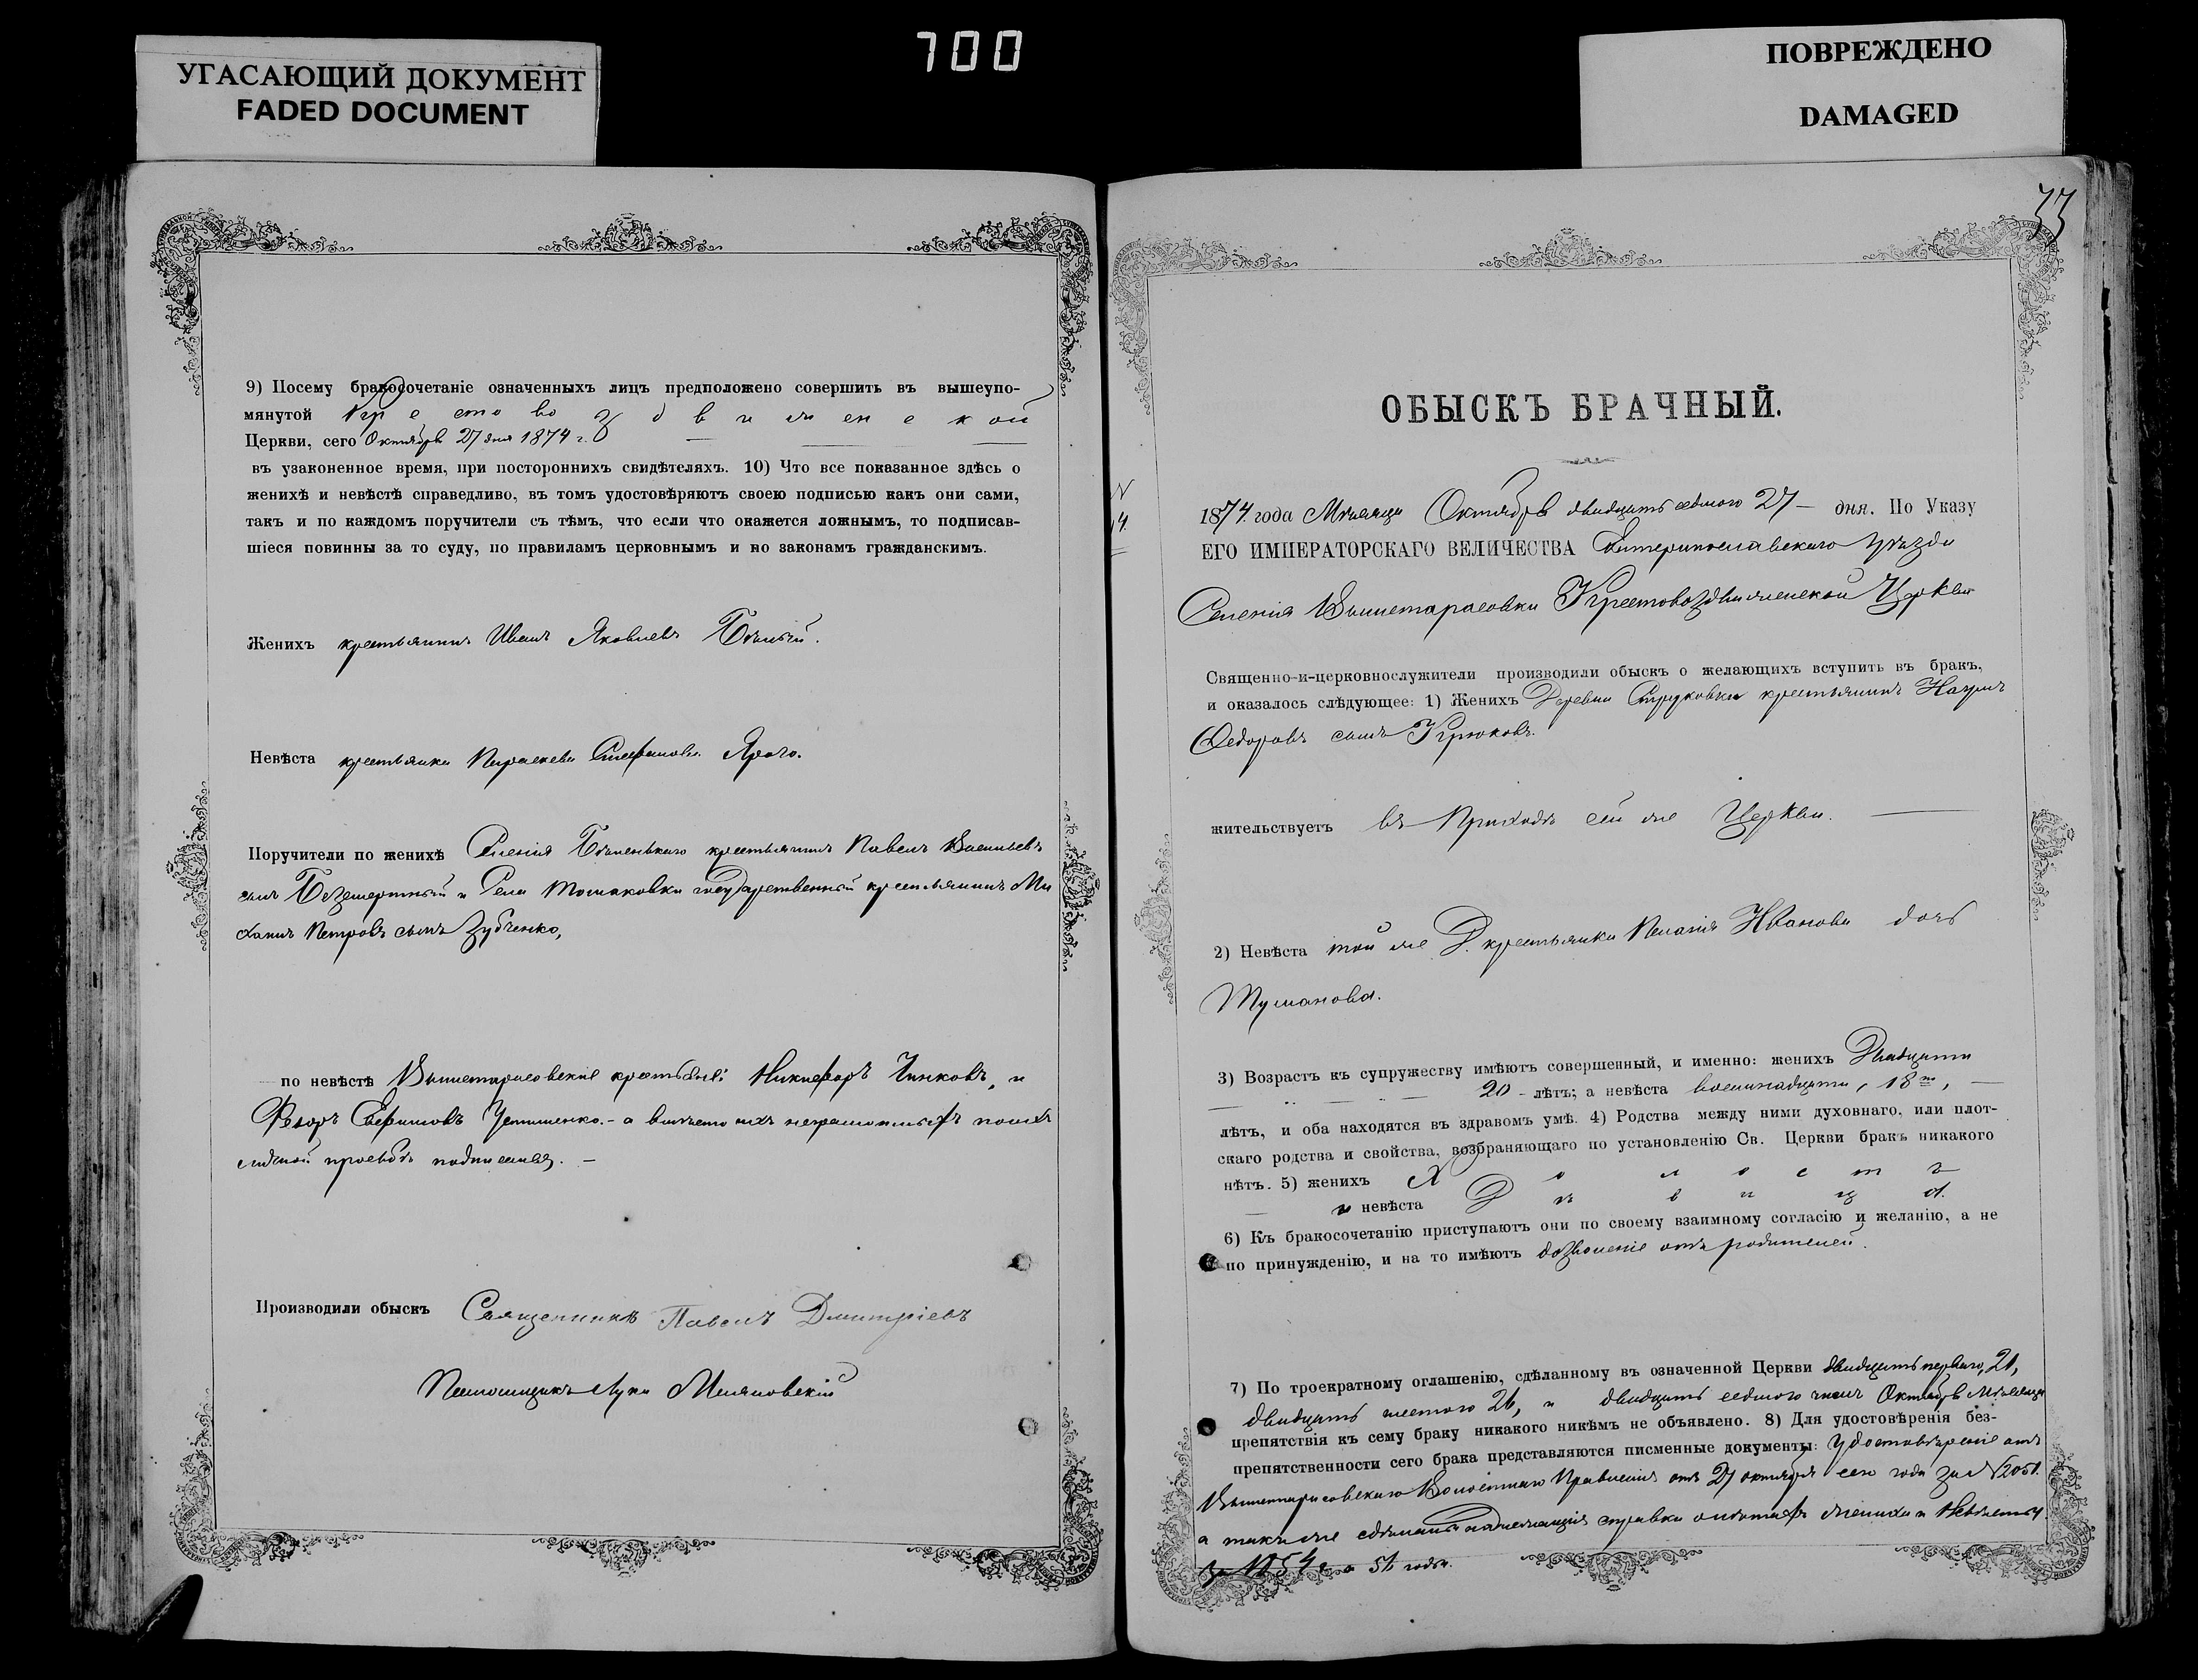 УГАСАЮЩИЙ ДОКУМЕНТ
FADED DOCUMENT
700
ПОВРЕЖДЕНО
DAMAGED
9) Посему бракосочетаніе означенныхъ лицъ предположено совершить въ вышеупо-
мянутой Крестовоздвиженской
Церкви, сего Октября 27 дня 1874 г.
въ узаконенное время, при постороннихъ свидѣтеляхъ. 10) Что все показанное здѣсь о
женихѣ и невѣстѣ справедливо, въ томъ удостовѣряютъ своею подписью какъ они сами,
такъ и по каждомъ поручители съ тѣмъ, что если что окажется ложнымъ, то подписав-
шіеся повинны за то суду, по правиламъ церковнымъ и по законамъ гражданскимъ.
Женихъ крестьянинъ Иванъ Яковлевъ Бѣлый.
Невѣста крестьянка Параскева Стефанова
Поручители по женихѣ Селенія Бѣленькаго крестьянинъ Павелъ Васильевъ
сынъ Безсмертный и Села Томаковки государственный крестьянинъ Ми
хаилъ Петровъ сынъ Зубченко,
по невѣстѣ Вышетарасовскіе крестьяне: Никифоръ Чинковъ, и
Феодоръ Ефимовъ Устименко. - а вмѣсто ихъ неграмотныхъ по ихъ
личной просьбѣ подписался. —
Производили обыскъ Священникъ Павелъ Дмитріевъ
Псаломщикъ Лука
33
ОБЫСКЪ БРАЧНЫЙ.
N
14.
1874 года Мѣсяца Октября двадцать седьмого 27 — дня. По Указу
ЕГО ИМПЕРАТОРСКАГО ВЕЛИЧЕСТВА Екатеринославскаго уѣзда
Селенія Вышетарасовки Крестовоздвиженской Церкви
Священно-и-церковнослужители производили обыскъ о желающихъ вступить въ бракъ,
и оказалось слѣдующее: 1) Женихъ Деревни Струковки крестьянинъ Наумъ
Федоровъ сынъ Крюковъ.
жительствуетъ въ Приходѣ сей же Церкви.
2) Невѣста той же Д. крестьянка Пелагія Иванова дочь
Туманова.
3) Возрастъ къ супружеству имѣютъ совершенный, и именно: женихъ Двадцати
20 - лѣтъ; а невѣста восемнадцати, 18ти, —
лѣтъ, и оба находятся въ здравомъ умѣ. 4) Родства между ними духовнаго, или плот-
скаго родства и свойства, возбраняющаго по установленію Св. Церкви бракъ никакого
нѣтъ. 5) женихъ Холостъ
и невѣста Дѣвица.
6) Къ бракосочетанію приступаютъ они по своему взаимному согласію и желанію, а не
по принужденію, и на то имѣютъ дозволеніе отъ родителей.
7) По троекратному оглашенію, сдѣланному въ означенной Церкви двадцать перваго, 21,
двадцать шестого 26, и двадцать седьмого чиселъ Октября Мѣсяца
препятствія къ сему браку никакого никѣмъ не объявлено. 8) Для удостовѣренія без-
препятственности сего брака представляются писменные документы: Удостовѣреніе отъ
Вышетарасовскаго Волостнаго Правленія отъ 27 октября сего года за № 2051.
а также сдѣланы надлежащія справки о лѣтахъ жениха и невѣсты
за 1854 и 56 годы.